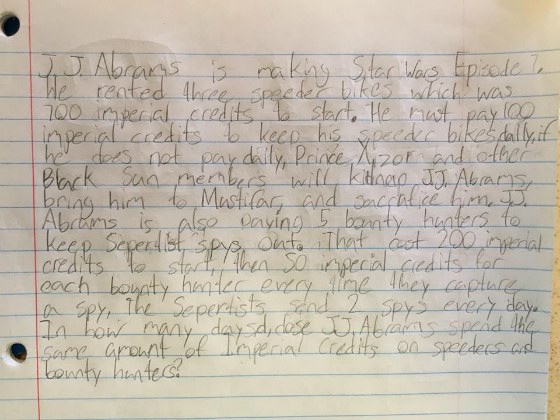 J.J. Abrams is making Star Wars Episode 7.
He rented three speeder bikes which was
700 imperial credits to start. He must pay 100
imperial credits to keep his speeder bikes daily, if
he does not pay daily, Prince Xizor and other
Black Sun members will kidnap J.J. Abrams,
bring him to Mustifar, and sacrafice him. J.J.
Abrams is also paying 5 bounty hunters to
keep Sepertist spys out. That cost 200 imperial
credits to start, then 50 imperial credits for
each bounty hunter every time they capture
a spy. The Sepertists send 2 spys every day.
In how many days does J.J. Abrams spend the
same amount of Imperial Credits on speeders and
bounty hunters?